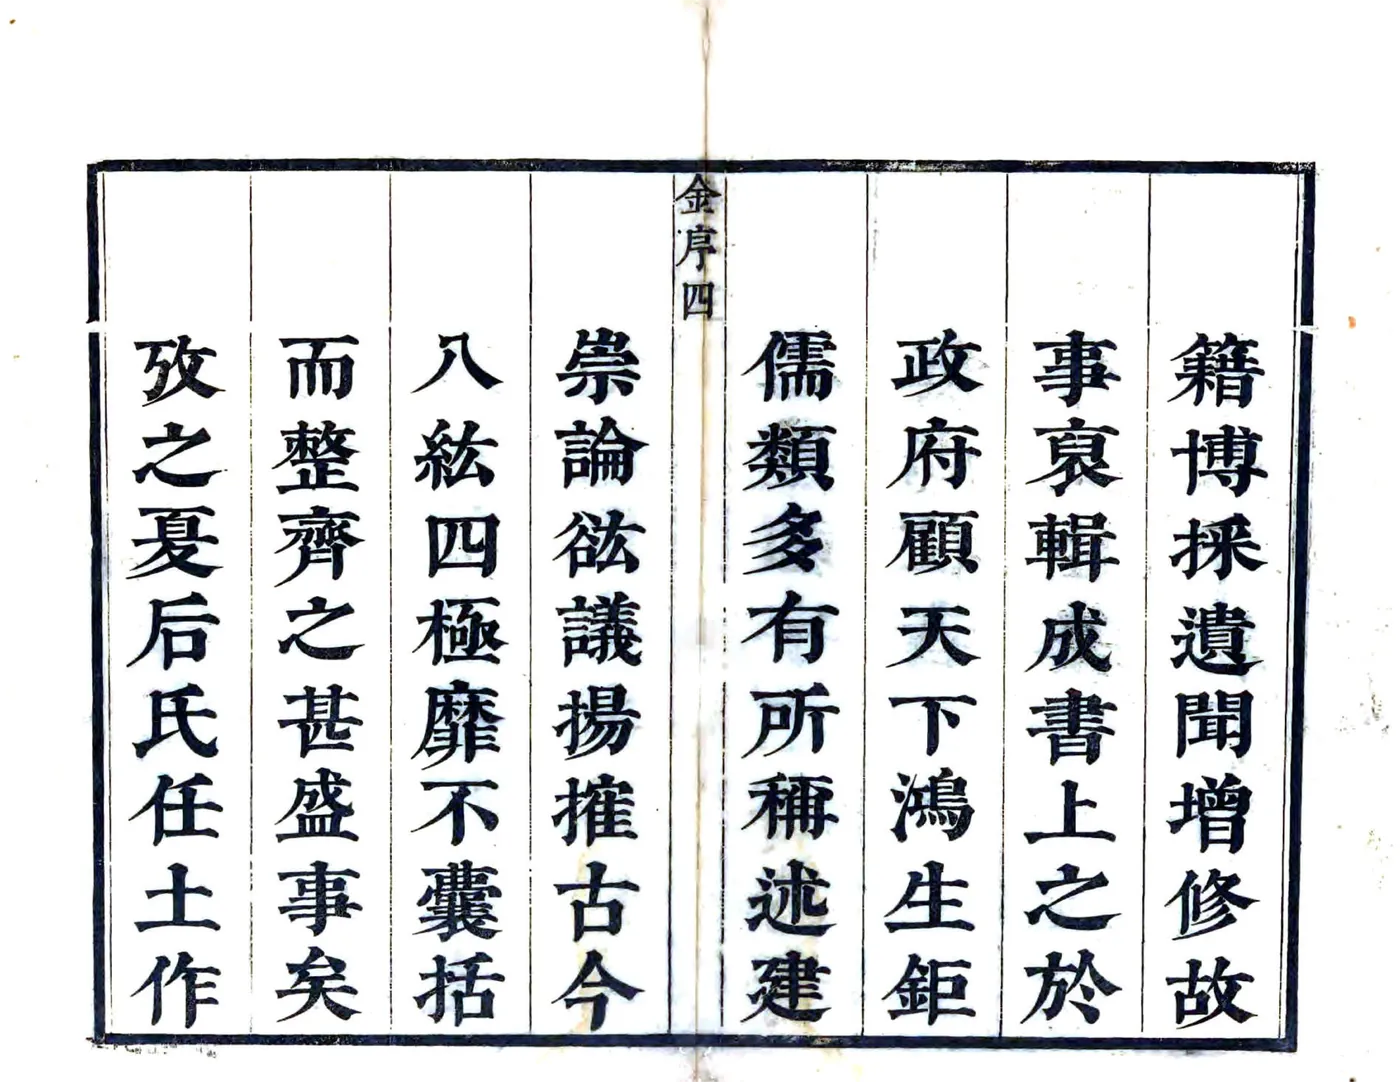 籍博採遺聞增修故
事裒輯成書上之於
政府顧天下鴻生鉅
儒類多有所稱述建
金序四
崇論谹議揚搉古今
八紘四極靡不囊括
而整齊之甚盛事矣
攷之夏后氏任土作